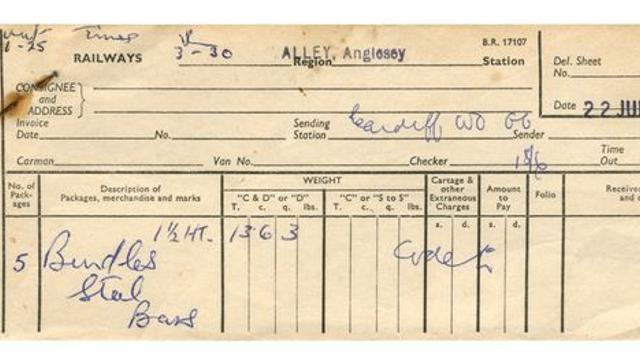 Times
1-25
RAILWAYS 3-30 ALLEY, Anglesey B.R. 17107
Region Station Del. Sheet
No.
CONSIGNEE
and
ADDRESS
Date 22 JU
Invoice
Date No. Sending
Station Cardiff Sender
Carman Van No. Checker Time
Out
No. of
Pack-
ages Description of
Packages, merchandise and marks WEIGHT Cartage &
other
Extraneous
Charges Amount
to
Pay Folio Receive
and
"C & D" or "D" "C" or "S to S"
T. c. q. lbs. T. c. q. lbs. s. d. s. d.
1½ Ht. 13 6 3
5 Bundles
Steel
Bars